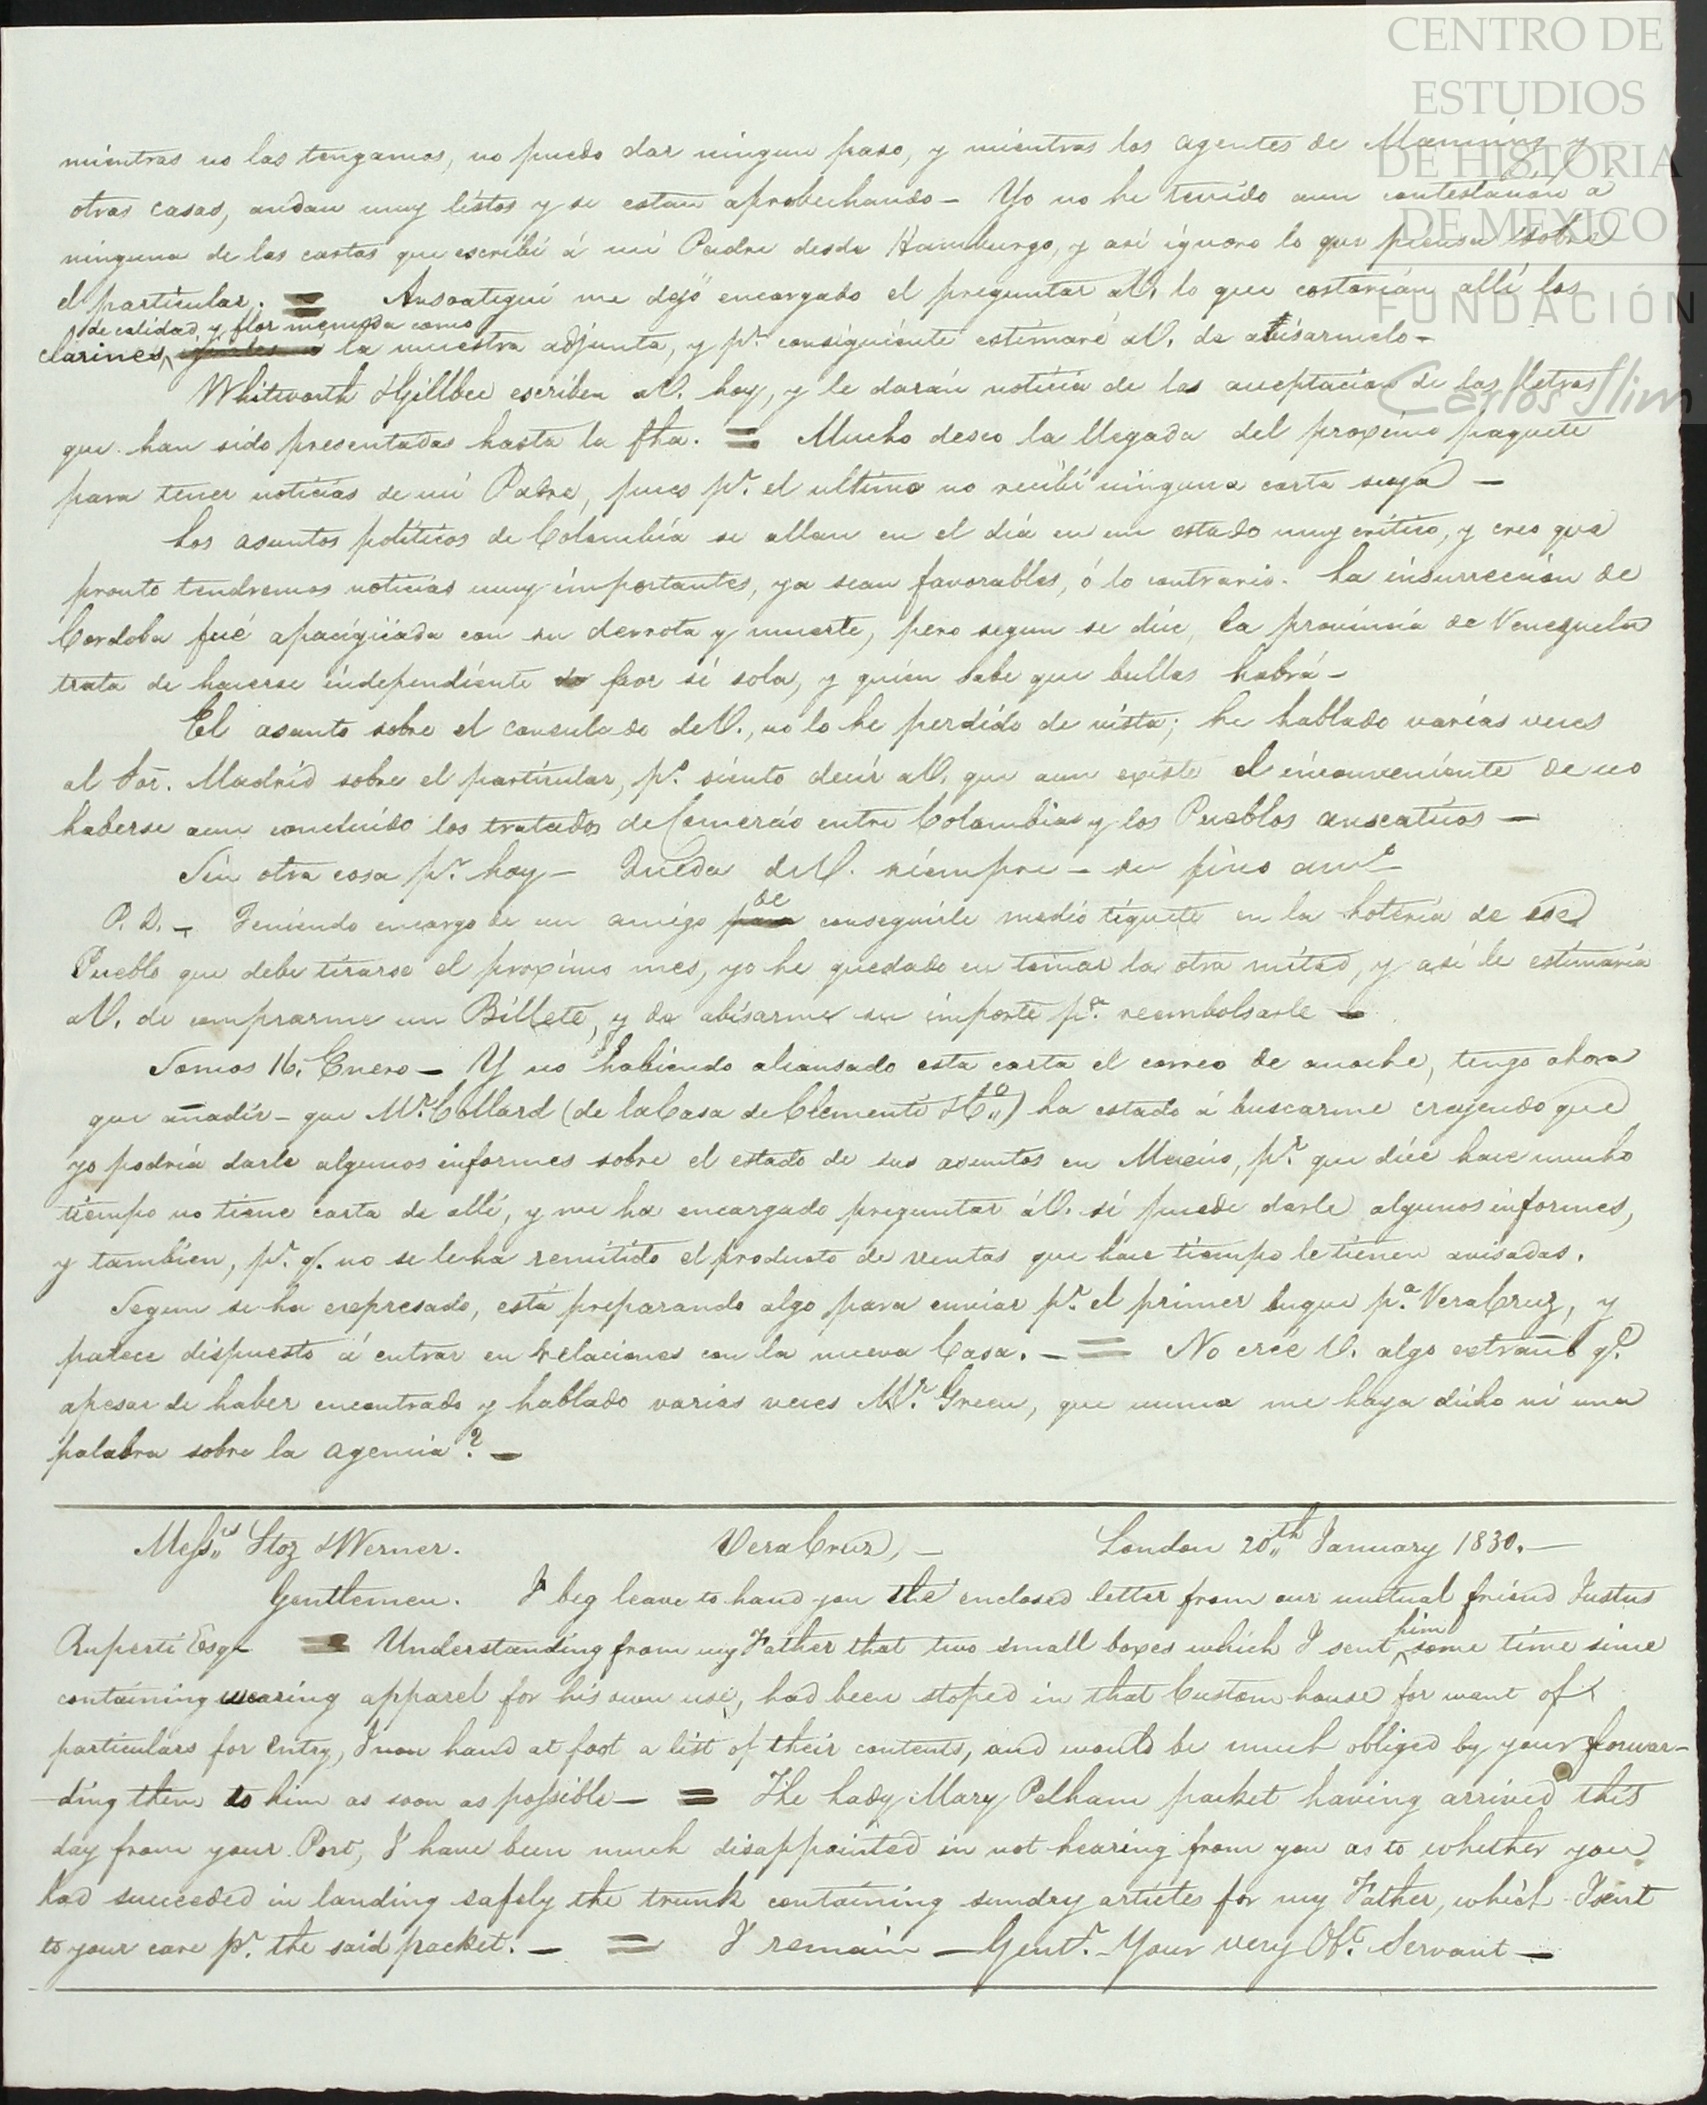 CENTRO DE
ESTUDIOS
DE HISTORIA
DE MEXICO
FUNDACIÓN
Carlos Slim
mientras no las tengamos, no puedo dar ningun paso, y mientras los agentes de Manning y
otras casas, andan muy listos y se estan aprobechando - Yo no he tenido aun contestacion á
ninguna de las cartas que escribí á mi Padre desde Hamburgo, y asi ignoro lo que piensa sobre
el particular. = Ansoategui me dejó encargado el preguntar a V. lo que costarián allí los
de calidad y flor menuda como
clarines la muestra adjunta, y pr. consiguiente estimaré a V. de abisarmelo -
Whitworth & Gillbee escriben a V. hoy, y le darán noticia de las aceptacion de las letras
que han sido presentadas hasta la fha. = Mucho deseo la llegada del proximo paquete
para tener noticias de mi Padre, pues pr. el ultimo no recibí ninguna carta suya -
Los asuntos politicos de Colombia se allan en el dia en un estado muy critico, y creo que
pronto tendremos noticias muy importantes, ya sean favorables, ó lo contrario. La insurreccion de
Cordoba fué apaciguada con su derrota y muerte, pero segun se dice, la provincia de Venezuela
trata de hacerse independiente por si sola, y quien sabe que bullas habrá -
El asunto sobre el consulado de V., no lo he perdido de vista; he hablado varias veces
al Sor. Madrid sobre el particular, po. siento decir a V. que aun existe el inconveniente de no
haberse aun concluido los tratados de Comercio entre Colombia y los Pueblos anseaticos -
Sin otra cosa pr. hoy - Queda de V. siempre - su fino amo.
de
P.D. - Teniendo encargo de un amigo para conseguirle medio tiquete en la Loteria de ese
Pueblo que debe tirarse el proximo mes, yo he quedado en tomar la otra mitad, y asi le estimaria
a V. de comprarme un Billete, y de abisarme su importe pa. reembolsarle -
Somos 16. Enero - Y no habiendo alcansado esta carta el correo de anoche, tengo ahora
que añadir - que Mr. Collard (de la Casa de Clemente & Co.) ha estado á buscarme creyendo que
yo podria darle algunos informes sobre el estado de sus asuntos en Mexico, pr. que dice hace mucho
tiempo no tiene carta de alli, y me ha encargado preguntar á V. si puede darle algunos informes,
y tambien, pr. q. no se le ha remitido el producto de ventas que hace tiempo le tienen avisadas.
Segun se ha expresado, está preparando algo para enviar pr. el primer buque pa. VeraCruz, y
parece dispuesto á entrar en relaciones con la nueva Casa. - = No crée V. algo extraño qe.
apesar de haber encontrado y hablado varias veces Mr. Green, que nunca me haya dicho ni una
palabra sobre la agencia? -
Messrs. Stoz & Werner. VeraCruz, - London 20th January 1830. -
Gentlemen. I beg leave to hand you the enclosed letter from our mutual friend Justus
him
Ruperti Esqr. = Understanding from my Father that two small boxes which I sent some time since
containing wearing apparel for his own use, had been stoped in that Custom house for want of
particulars for entry, I now hand at foot a list of their contents, and would be much obliged by your forwar-
ding them to him as soon as possible - = The Lady Mary Pelham packet having arrived this
day from your Port, I have been much disappointed in not hearing from you as to whether you
had succeeded in landing safely the trunk containing sundry articles for my Father, which I sent
to your care pr. the said packet. - = I remain - Gentn. Your very Obt. Servant -